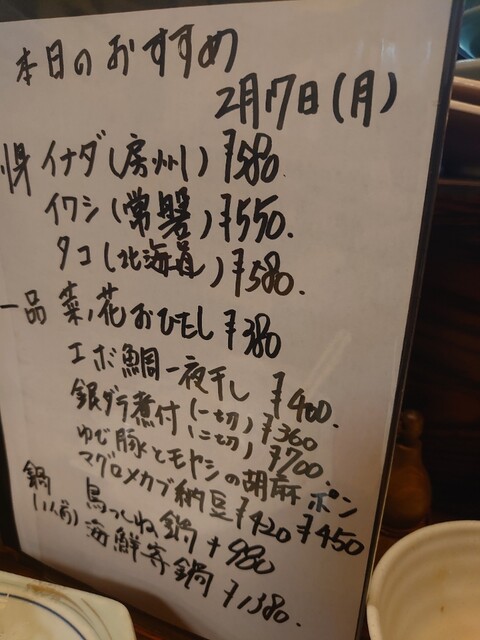 本日のおすすめ
2月17日(月)
刺身 イナダ(房州) ¥580.
イワシ(常磐) ¥550.
タコ(北海道) ¥580.
一品 菜ノ花おひたし ¥380
エボ鯛一夜干し ¥400.
銀ダラ煮付(一切) ¥360
(二切) ¥700.
ゆで豚とモヤシの胡麻ポン ¥450
マグロメカブ納豆 ¥420
鍋 鳥つくね鍋 ¥980
(1人前) 海鮮寄鍋 ¥1380.